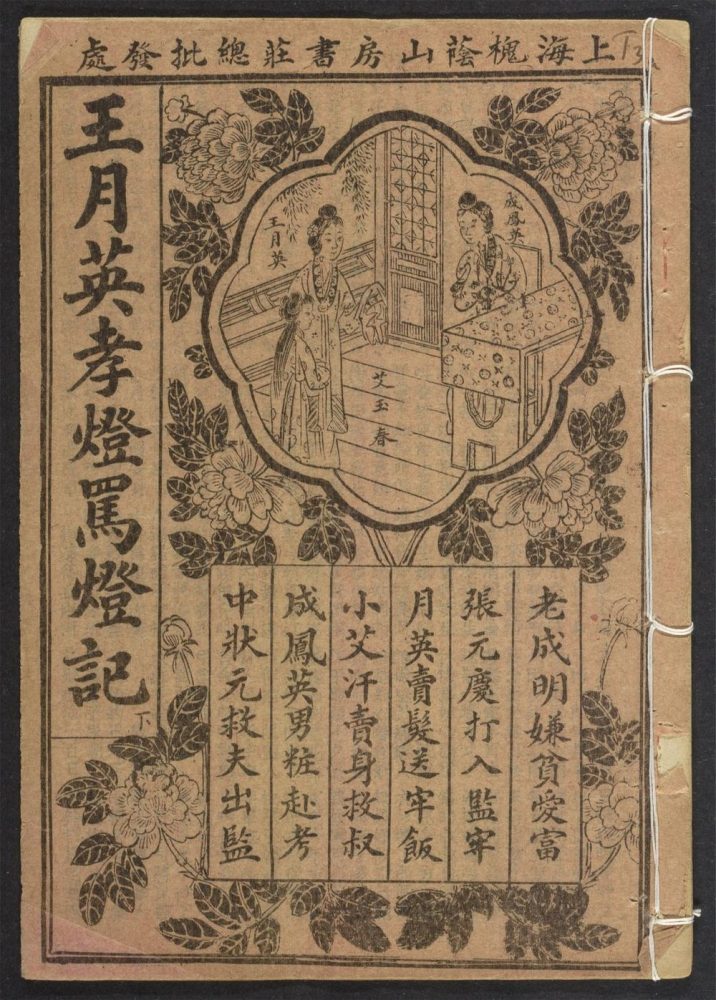 上海槐蔭山房書莊總批發處
王月英孝燈罵燈記
下
成鳳英
王月英
艾玉春
老成明嫌貧愛富
張元慶打入監牢
月英賣髮送牢飯
小艾汗賣身救叔
成鳳英男粧赴考
中狀元救夫出監